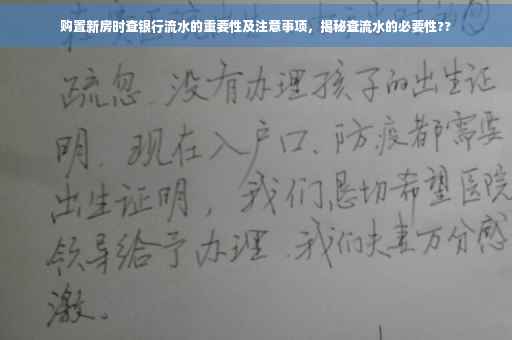 购置新房时查银行流水的重要性及注意事项，揭秘查流水的必要性??
疏忽、没有办理孩子的出生证
明、现在入户口、防疫都需要
出生证明，我们恳切希望医院
领导给予办理、我们夫妻万分感
激。